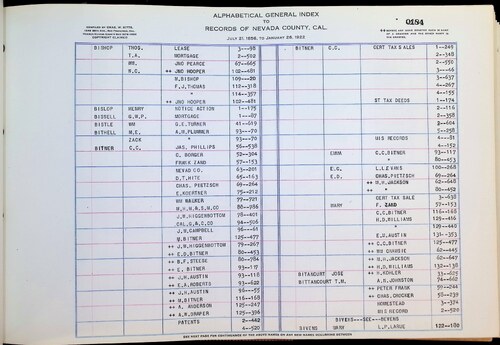 ALPHABETICAL GENERAL INDEX
TO
RECORDS OF NEVADA COUNTY, CAL.
JULY 21, 1856, TO JANUARY 28, 1922
0184
BISHOP THOS. LEASE 3---98
T.A. MORTGAGE 2--502
WM. JNO PEARCE 67--665
R.C. ++ JNO HOOPER 102--481
W.BISHOP 109--20
F.J.THOMAS 112--318
" 114--357
++ JNO HOOPER 102--481
BISLOP HENRY NOTICE ACTION 1--175
BISSELL G.W.P. MORTGAGE 1--87
BISTLE WM G.E.TURNER 41--619
BITHELL M.E. A.W.PLUMMER 93---70
ZACK " 93---70
BITNER C.C. JAS. PHILLIPS 56--538
C. BONGER 52--304
FRANK ZAND 57--153
NEVAD CO 63--201
D.T.HITE 65--163
CHAS. PUETZSCH 69--264
E.KOERTNER 75--212
WM WALKER 77--721
M.H.N.G.S.M.CO 88--786
J.W.HIGGENBOTTOM 78--401
CAL.G.A.C.CO 94--506
J.W.CAMPBELL 96---61
M.BITNER 125--477
++ J.W.HIGGENBOTTOM 79--267
++ E.D.BITNER 80--453
++ B.F.STEESE 86--784
++ E. BITNER 93--117
++ J.H.AUSTIN 93--118
++ E.A.ROBERTS 93--622
++ J.H.AUSTIN 96---55
++ M.BITNER 116--168
++ A. ANDERSON 125--247
++ A.M.DRAPER 125--396
PATENTS 2--442
4--520
BITNER C.C. CERT TAX SALES 1--349
2--348
2--550
3---46
3--637
4--267
4--155
ST TAX DEEDS 1--174
2--116
2--358
2--604
5--258
MIS RECORDS 4---81
4--152
EMMA C.C.BITNER 93--117
" 80--453
E.C. L.L.EVANS 100--268
E.D. CHAS.PUETZSCH 69--264
++ M.H.JACKSON 62--648
++ " 80--452
CERT TAX SALE 3--638
MARY F. ZAND 57--153
C.C.BITNER 116--168
H.D.WILLIAMS 125--416
" 129--440
E.M.AUSTIN 131--353
++ C.C.BITNER 125--477
++ M.H.JACKSON 62--647
++ H.D.WILLIAMS 132--138
BITANCOURT JOSE ++ H.KOHLER
BITTANCOURT T.M. A.B.JOHNSTON 74--662
++ PETER FRANK 59--244
++ CHAS.CROCKER 98--239
HOMESTEAD 3--324
MIS RECORD 2--520
BIVENS---SEE--BEVENS
BIVENS MARY L.P.LARUE 122--188